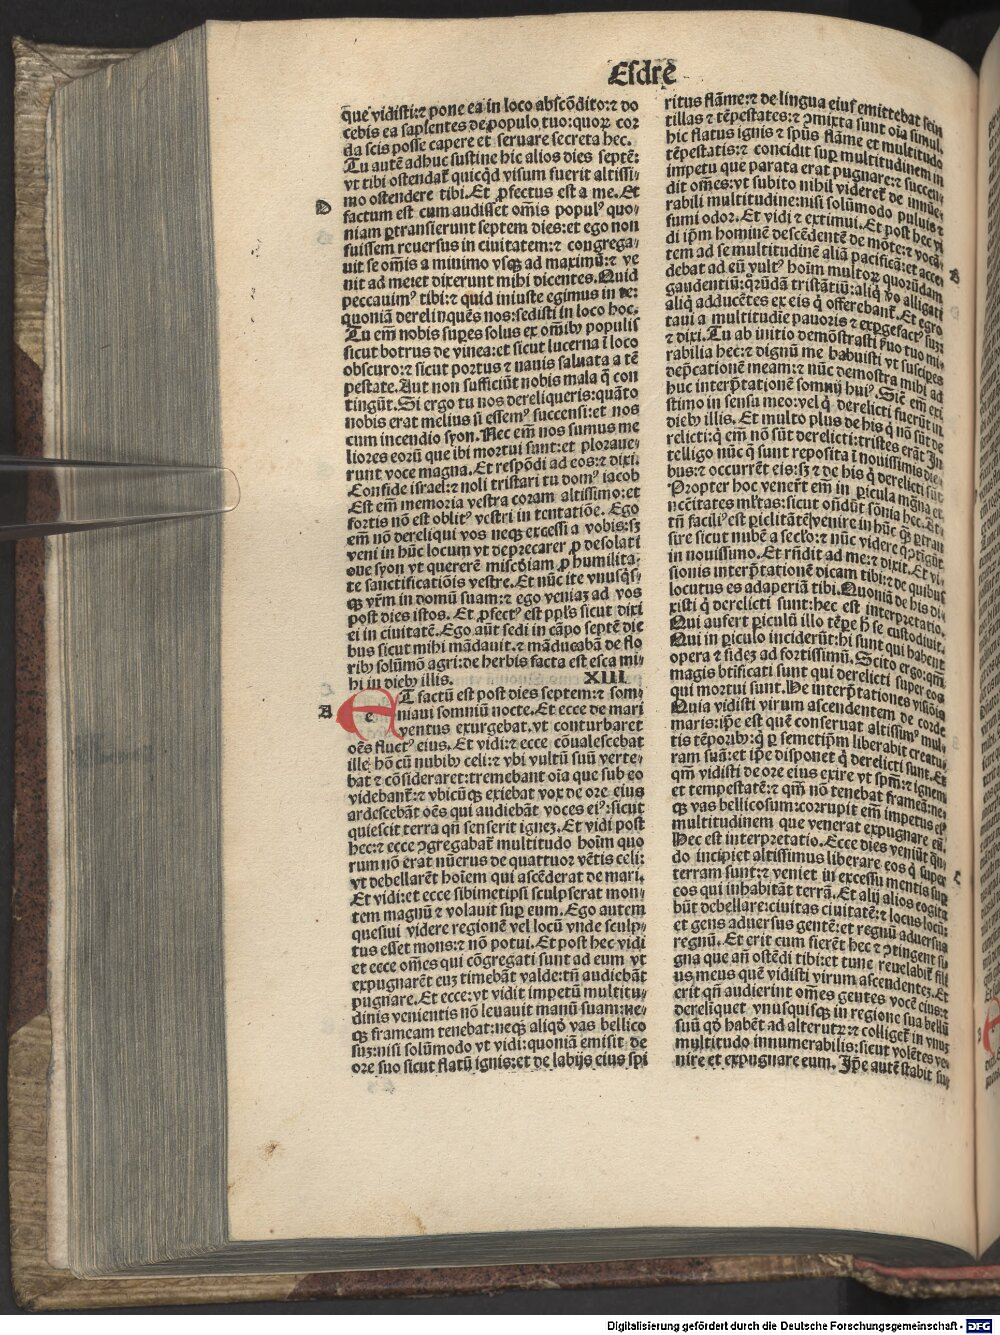 Esdrē
que vidisti:⁊ pone ea in loco abscōdito:⁊ do
cebis ea sapientes de populo tuo:quoꝝ cor
da scis posse capere et seruare secreta hec.
Tu autē adhuc sustine hic alios dies septē:
vt tibi ostendat̄ quicqd visum fuerit altissi/
mo ostendere tibi.Et ꝓfectus est a me.Et
D
factum est cum audisset om̄is popul⁹ quo/
niam ꝑtransierunt septem dies:et ego non
fuissem reuersus in ciuitatem:⁊ congrega/
uit se om̄is a minimo vsqꝫ ad maximū:⁊ ve
nit ad me:et dixerunt mihi dicentes.Quid
peccauim⁹ tibi:⁊ quid iniuste egimus in te:
quoniā derelinquēs nos:sedisti in loco hoc.
Tu em̄ nobis suꝑes solus ex om̄ibꝰ populis
sicut botrus de vinea:et sicut lucerna ī loco
obscuro:⁊ sicut portus ⁊ nauis saluata a tē
pestate.Aut non sufficiūt nobis mala q̄ con
tingūt.Si ergo tu nos dereliqueris:quāto
nobis erat melius si essem⁹ succensi:et nos
cum incendio syon.Nec em̄ nos sumus me
liores eorū que ibi mortui sunt:et ploraue/
runt voce magna.Et respōdi ad eos:⁊ dixi.
Confide israel:⁊ noli tristari tu dom⁹ iacob
Est em̄ memoria vestra coram altissimo:et
fortis nō est oblit⁹ vestri in tentatiōe. Ego
em̄ nō dereliqui vos neqꝫ excessi a vobis:sꝫ
veni in hūc locum vt deprecarer ꝓ desolati
oue syon vt quererē misc̄diam ꝓ humilita/
te sanctificatiōis vestre.Et nūc ite vnusq̄s/
qꝫ vr̄m in domū suam:⁊ ego veniaꝫ ad vos
post dies istos. Et ꝓfect⁹ est ppl̄s sicut dixi
ei in ciuitatē.Ego aūt sedi in cāpo septē die
bus sicut mihi mādauit.⁊ māducabā de flo
ribꝰ solūmō agri:de herbis facta est esca mi/
hi in diebꝰ illis. XIII
A
ET factū est post dies septem:⁊ som/
niaui somniū nocte.Et ecce de mari
ventus exurgebat.vt conturbaret
oēs fluct⁹ eius.Et vidi:⁊ ecce cōualescebat
ille hō cū nubibꝰ celi:⁊ vbi vultū suū verte/
bat ⁊ cōsideraret:tremebant oīa que sub eo
videbant̄:⁊ vbicūqꝫ exiebat vox de ore eius
ardescebāt oēs qui audiebāt voces ei⁹:sicut
quiescit terra qn̄ senserit igneꝫ.Et vidi post
hec:⁊ ecce ꝯgregabat̄ multitudo hoīm quo
rum nō erat nūerus de quattuor vētis celi:
vt debellarēt hoīem qui ascēderat de mari.
Et vidi:et ecce sibimetipsi sculpserat mon/
tem magnū ⁊ volauit suꝑ eum. Ego autem
quesiui videre regionē vel locū vnde sculp/
tus esset mons:⁊ nō potui.Et post hec vidi
et ecce om̄es qui cōgregati sunt ad eum vt
expugnarēt euꝫ timebāt valde:tn̄ audiebāt
pugnare.Et ecce:vt vidit impetū multitu/
dinis venientis nō leuauit manū suam:ne/
qꝫ frameam tenebat:neqꝫ aliqd̄ vas bellico
suꝫ:nisi solūmodo vt vidi:quoniā emisit de
ore suo sicut flatū ignis:et de labijs eius spi
ritus flāme:⁊ de lingua eius emittebat scin
tillas ⁊ tēpestates:⁊ ꝯmixta sunt oīa simul,
hic flatus ignis ⁊ spūs flāme et multitudo
tēpestatis:⁊ concidit suꝑ multitudinem in
impetu que parata erat pugnare:⁊ succen/
dit om̄es:vt subito nihil videret̄ de innue/
rabili multitudine:nisi solūmodo puluis ⁊
fumi odor.Et vidi ⁊ extimui.Et post hec vi
di ip̄m hominē descēdentē de mōte:⁊ vocā/
tem ad se multitudinē aliā pacificā:et acce/
B
debat ad eū vult⁹ hoīm multoꝝ quorūdam
gaudentiū:q̄rūdā tristātiū:aliq̄ vo alligati
aliq̄ adducētes ex eis q̄ offerebant̄.Et egro
taui a multitudīe pauoris ⁊ exꝑgefact⁹ suꝫ
⁊ dixi.Tu ab initio demōstrasti ẜuo tuo mi/
rabilia hec:⁊ dignū me habuisti vt susciꝑes
dep̄cationē meam:⁊ nūc demostra mihi ad
huc interp̄tationē somnij hui⁹. Sic em̄ exi
stimo in sensu meo:vel q̄ derelicti fuerūt in
diebꝰ illis. Et multo plus de his q̄ nō sūt de
relicti:q̄ em̄ nō sūt derelicti:tristes erāt In
telligo nūc q̄ sunt reposita ī nouissimis die/
bus:⁊ occurrēt eis:sꝫ ⁊ de his q̄ derelicti sūt
Propter hoc venert̄ em̄ in ꝑicula magna et
nc̄citates ml̄tas:sicut on̄dūt sōnia hec. At/
tn̄ facili⁹ est ꝑiclitātē venire in hūc qꝫ ꝑtran
sire sicut nubē a scl̄o:⁊ nūc videre q̄ ꝯtigūt
in nouissimo.Et rn̄dit ad me:⁊ dixit.Et vi/
sionis interp̄tationē dicam tibi:⁊ de quibus
locutus es adaperiā tibi.Quoniā de his di/
xisti q̄ derelicti sunt:hec est interp̄tatio.
Qui aufert ꝑiculū illo tēꝑe h̄ se custodiuit.
Qui in ꝑiculo inciderūt:hi sunt qui habent
opera ⁊ fideꝫ ad fortissimū. Scito ergo:qm̄
magis btificati sunt qui derelicti super eos
qui mortui sunt.He interp̄tationes visiōis
Quia vidisti virum ascendentem de corde
maris:ip̄e est quē conseruat altissim⁹ mul/
tis tēporibꝰ:q̄ ꝑ semetip̄m liberabit creatu/
ram suā:et ip̄e disponet q̄ derelicti sunt.Et
qm̄ vidisti de ore eius exire vt spm̄:⁊ ignem
et tempestatē:⁊ qm̄ nō tenebat frameā:ne/
qꝫ vas bellicosum:corrupit em̄ impetus ei⁹
multitudinem que venerat expugnare eū.
Hec est interpretatio.Ecce dies veniūt q̄n/
do incipiet altissimus liberare eos q̄ super
C
terram sunt:⁊ veniet in excessu mentis sup
eos qui inhabitāt terrā.Et alij alios cogita
būt debellare:ciuitas ciuitatē:⁊ locus locū:
et gens aduersus gentē:et regnū aduersus
regnū.Et erit cum fierēt hec ⁊ ꝯtingent si/
gna que an̄ ostēdi tibi:et tunc reuelabit̄ fili
us meus quē vidisti virum ascendenteꝫ.Et
erit qn̄ audierint om̄es gentes vocē eius:⁊
dereliquet vnusquisqꝫ in regione sua bellū
suū qd̄ habēt ad alterutꝝ:⁊ colliget̄ in vnuꝫ
multitudo innumerabilis:sicut volētes ve/
nire et expugnare eum. Ip̄e autē stabit suꝑ
Digitalisierung gefördert durch die Deutsche Forschungsgemeinschaft - DFG